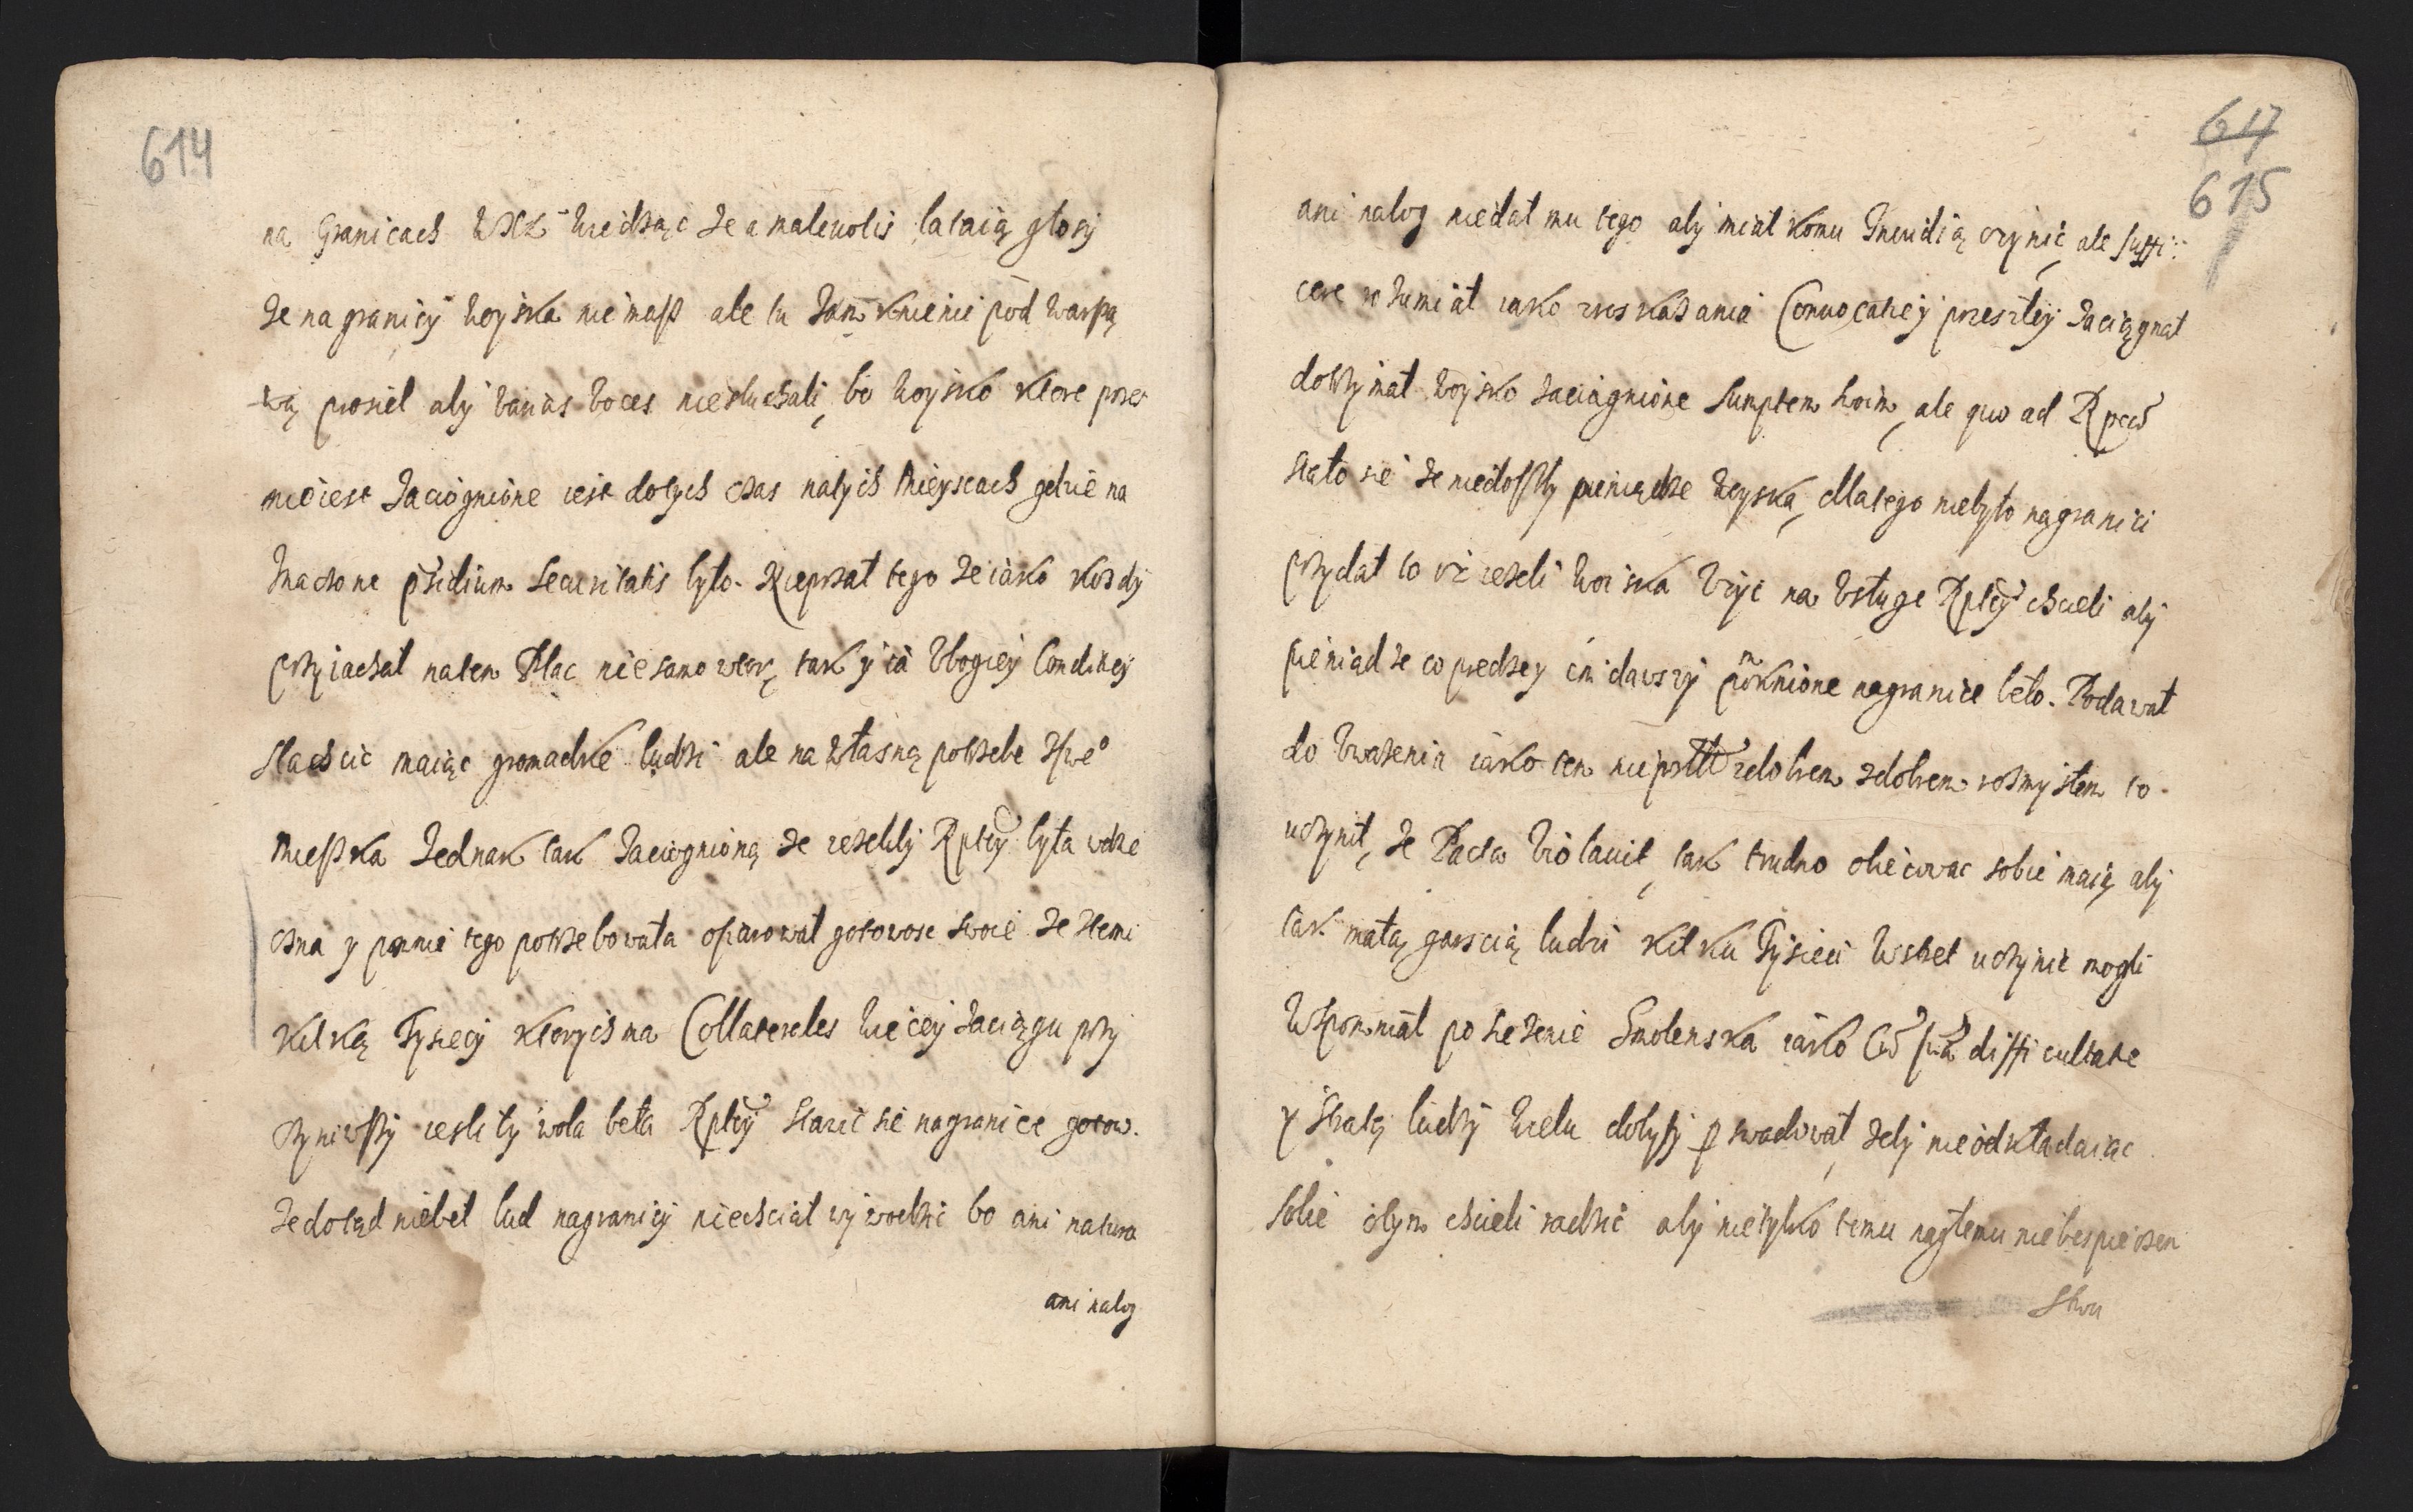 614
na Granicach WXL Wiedząc że a malevolis lataią głosy
że na granicy woyska nie masz ale tu zamknieni pod warszą
wą prosieł aby vanas voces niesłuchali, bo woysko ktore przez
mie iest zaciągnione iest dotych czas natych Mieyscach gdzie na
znaczone psidium securitatis było. Nieprzał tego że iako kożdy
przyiachał naten Plac nie samowtor, tak y ia Vbogiey Conditiey
slachcic maiąc gromadke ludzi ale na własną potrzebe
Mieszka Jednak tak zaciągnioną że ieżeliby Rptcy była wdzie
czna y pomnie tego potrzebowała ofiarował gotowosc swoie że stemi
kilką Tysięcy ktorych ma Collaterales więcey zaciągu przy
czyniwszy iesli ty wola beła Rptcy stawic sie nagranice gotow.
że dotąd niebeł lud nagranicy niechciał wywodzic bo ani natura
ani nalog
617
615
ani nalog niedał mu tego aby miał komu Inuidią czynic, ale suffi:
cere rozumiał iako zroskazania Conuocatiey przeszłey zaciągnął
dotrzymał woysko zaciągnione sumptem swoim, ale quo ad Rpcam
stało sie że niedoszły pieniądze woyska, dlatego niebyło nagranici
przydał to iż ieżeli woiska Vżyc na Vsługe Rptcy chcieli aby
pieniadze co predzey im dawszy pomknione nagranice beło. Podawał
do Vważenia iako ten nieprzyl zdobrem zdobrem rozmysłem to
uczynił, że Pacta Violauit, tak trudno obiecowac sobie maią aby
tak małą garscią ludzi kilku Tysieci Wstręt uczynic mogli
Wspominał posieżenie Smolenska iako Cum sua difficultate
y stratą ludzy wielu dobyty pswadował żeby nieodkładaiac
sobie otym chcieli radzic aby nietylko temu nagłemu niebespieczen
stwu